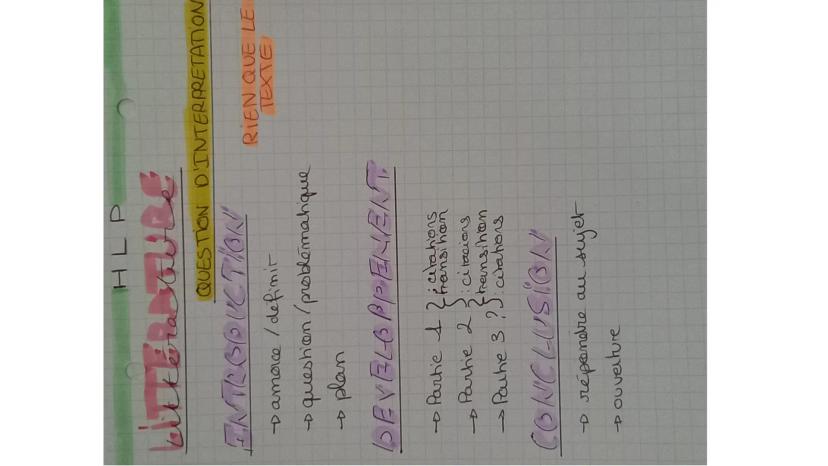 HLP
Littérature
QUESTION D'INTERPRETATION
RIEN QUE LE
TEXTE
INTRODUCTION
→ amorce / définir
→ question / problématique
→ plan
DEVELOPPEMENT
→ Partie 1 } : citations
transition
→ Partie 2 } : citations
{ transition
→ Partie 3 ? } : citations
CONCLUSION
→ répondre au sujet
→ ouverture